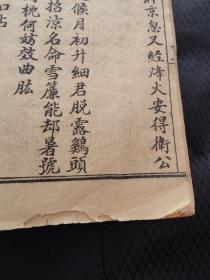 京忽又經烽火安得衛公
候月初升細君脫露鷄頭
招涼名命雪簾能却暑號
枕何妨效曲肱
口占